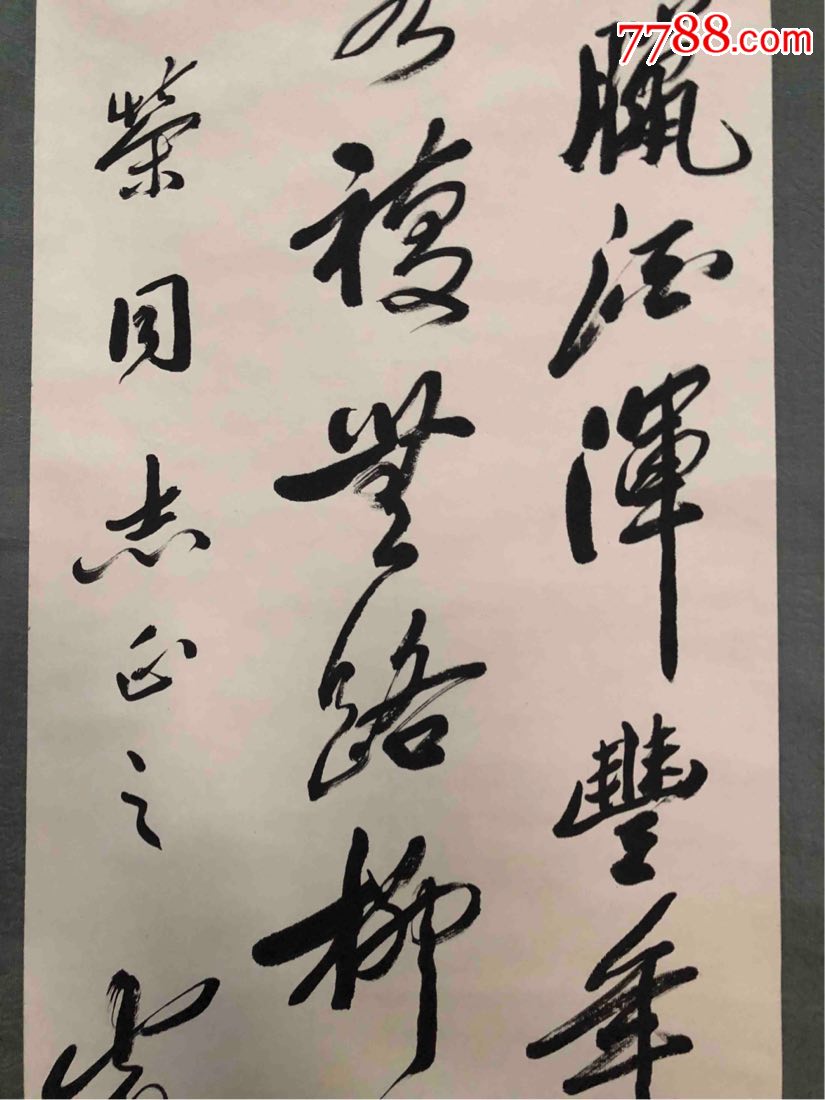 7788.com
臘酒渾豐年
複無路柳
榮同志正之